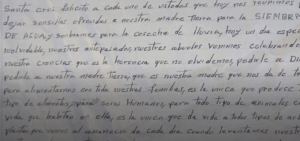 Santa cruz debido a cada uno de ustedes que hoy nos reunimos
dejar semillas ofrendas a nuestra madre tierra para la SIEMBRA
DE AGUA, y sorbamos para la cosecha de lluvia, hoy un dia espe
inolvidable, nuestros antepasados, nuestros abuelos vinieron celebrando
nuestra creencias que es la herencia que no olvidemos, pedirle a Di
pedirle a nuestra madre tierra, que es nuestra madre que nos da de to
para alimentarnos con toda nuestras familias, es la unica que produce
tipo de alimentos, para seres Humanos, para todo tipo de animales c
vida que habitan en ella, es la unica que da vida a todos tipos de
plantas por vernos al amanecer de cada dia cuando levantamos nuest